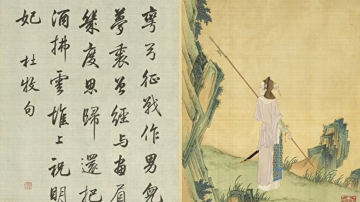 彎弓征戰作男兒
夢裏曾經與畫眉
幾度思歸還把
酒拂雲堆上祝明
妃 杜牧句